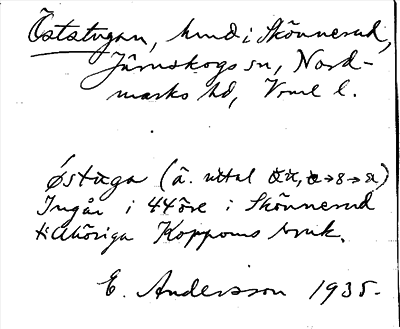 Öststugan, hmd i Skönnerud,
Järnskogs sn, Nord-
marks hd, Vrml l.
östuga (ä. uttal
Ingår i 44öre i Skönnerud
tillhöriga Koppoms bruk.
E. Andersson 1935.